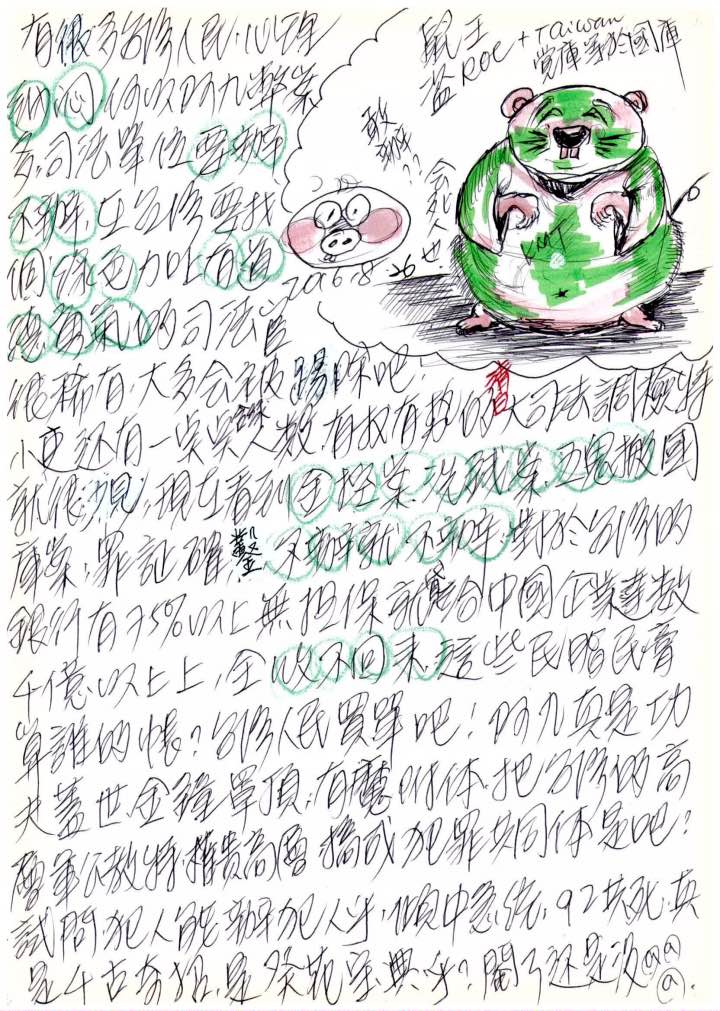 有很多台湾人民心理
納悶何以阿九弊案
多司法單位要辦
不辦在台湾要找
個綠色力吐有道
德勇氣的司法官
很稀有大多会被踢除吧
小吏还有一点点人数有权有勢的大司法調檢特
就很現在看到金控案洗錢案五鬼搬國
庫案罪証確鑿不辦就不辦對於台湾的
銀行有75%以上無担保就給中國企業達數
千億以上上全收不回来這些民脂民膏
算誰的帳？台湾人民買單吧！阿九真是功
夫蓋世金鐘罩頂有魔附体把台湾的高
層軍公教特權貴高層搞成犯罪共同体是吧？
試問犯人能辦犯人乎傾中急統92共死真
是千古奇招是葵花宝典乎？閹了还是没
鼠王
盜ROC+Taiwan
党庫等於國庫
敢辦??
会死人也！
2016.8.26
KMT